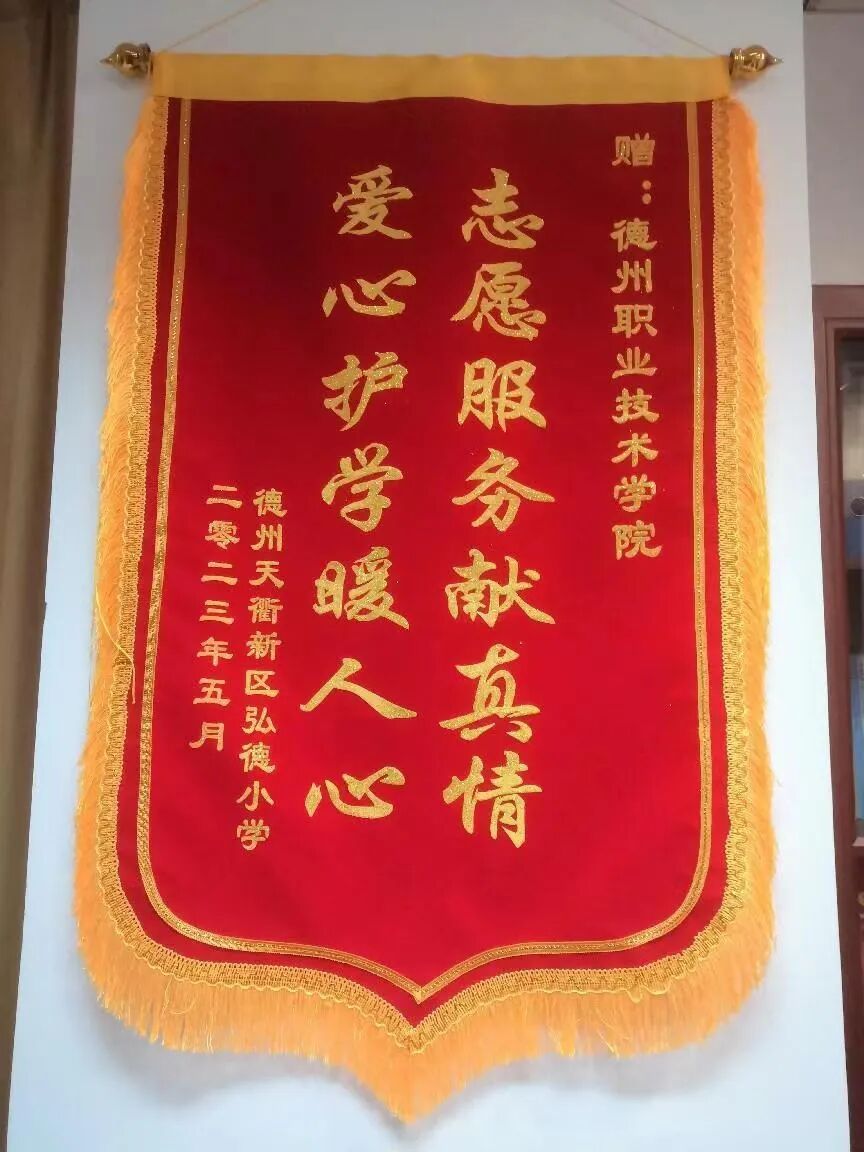 赠：德州职业技术学院
志愿服务献真情
爱心护学暖人心
德州天衢新区弘德小学
二零二三年五月